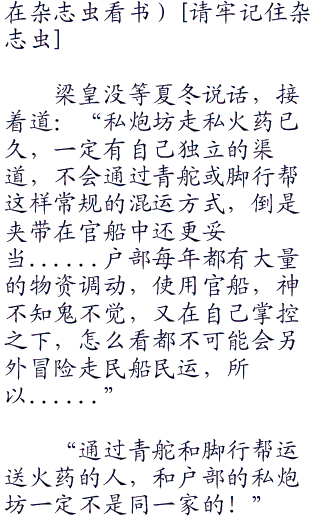 在杂志虫看书）[请牢记住杂
志虫]
梁皇没等夏冬说话，接
着道：“私炮坊走私火药已
久，一定有自己独立的渠
道，不会通过青舵或脚行帮
这样常规的混运方式，倒是
夹带在官船中还更妥
当......户部每年都有大量
的物资调动，使用官船，神
不知鬼不觉，又在自己掌控
之下，怎么看都不可能会另
外冒险走民船民运，所
以......”
“通过青舵和脚行帮运
送火药的人，和户部的私炮
坊一定不是同一家的！”